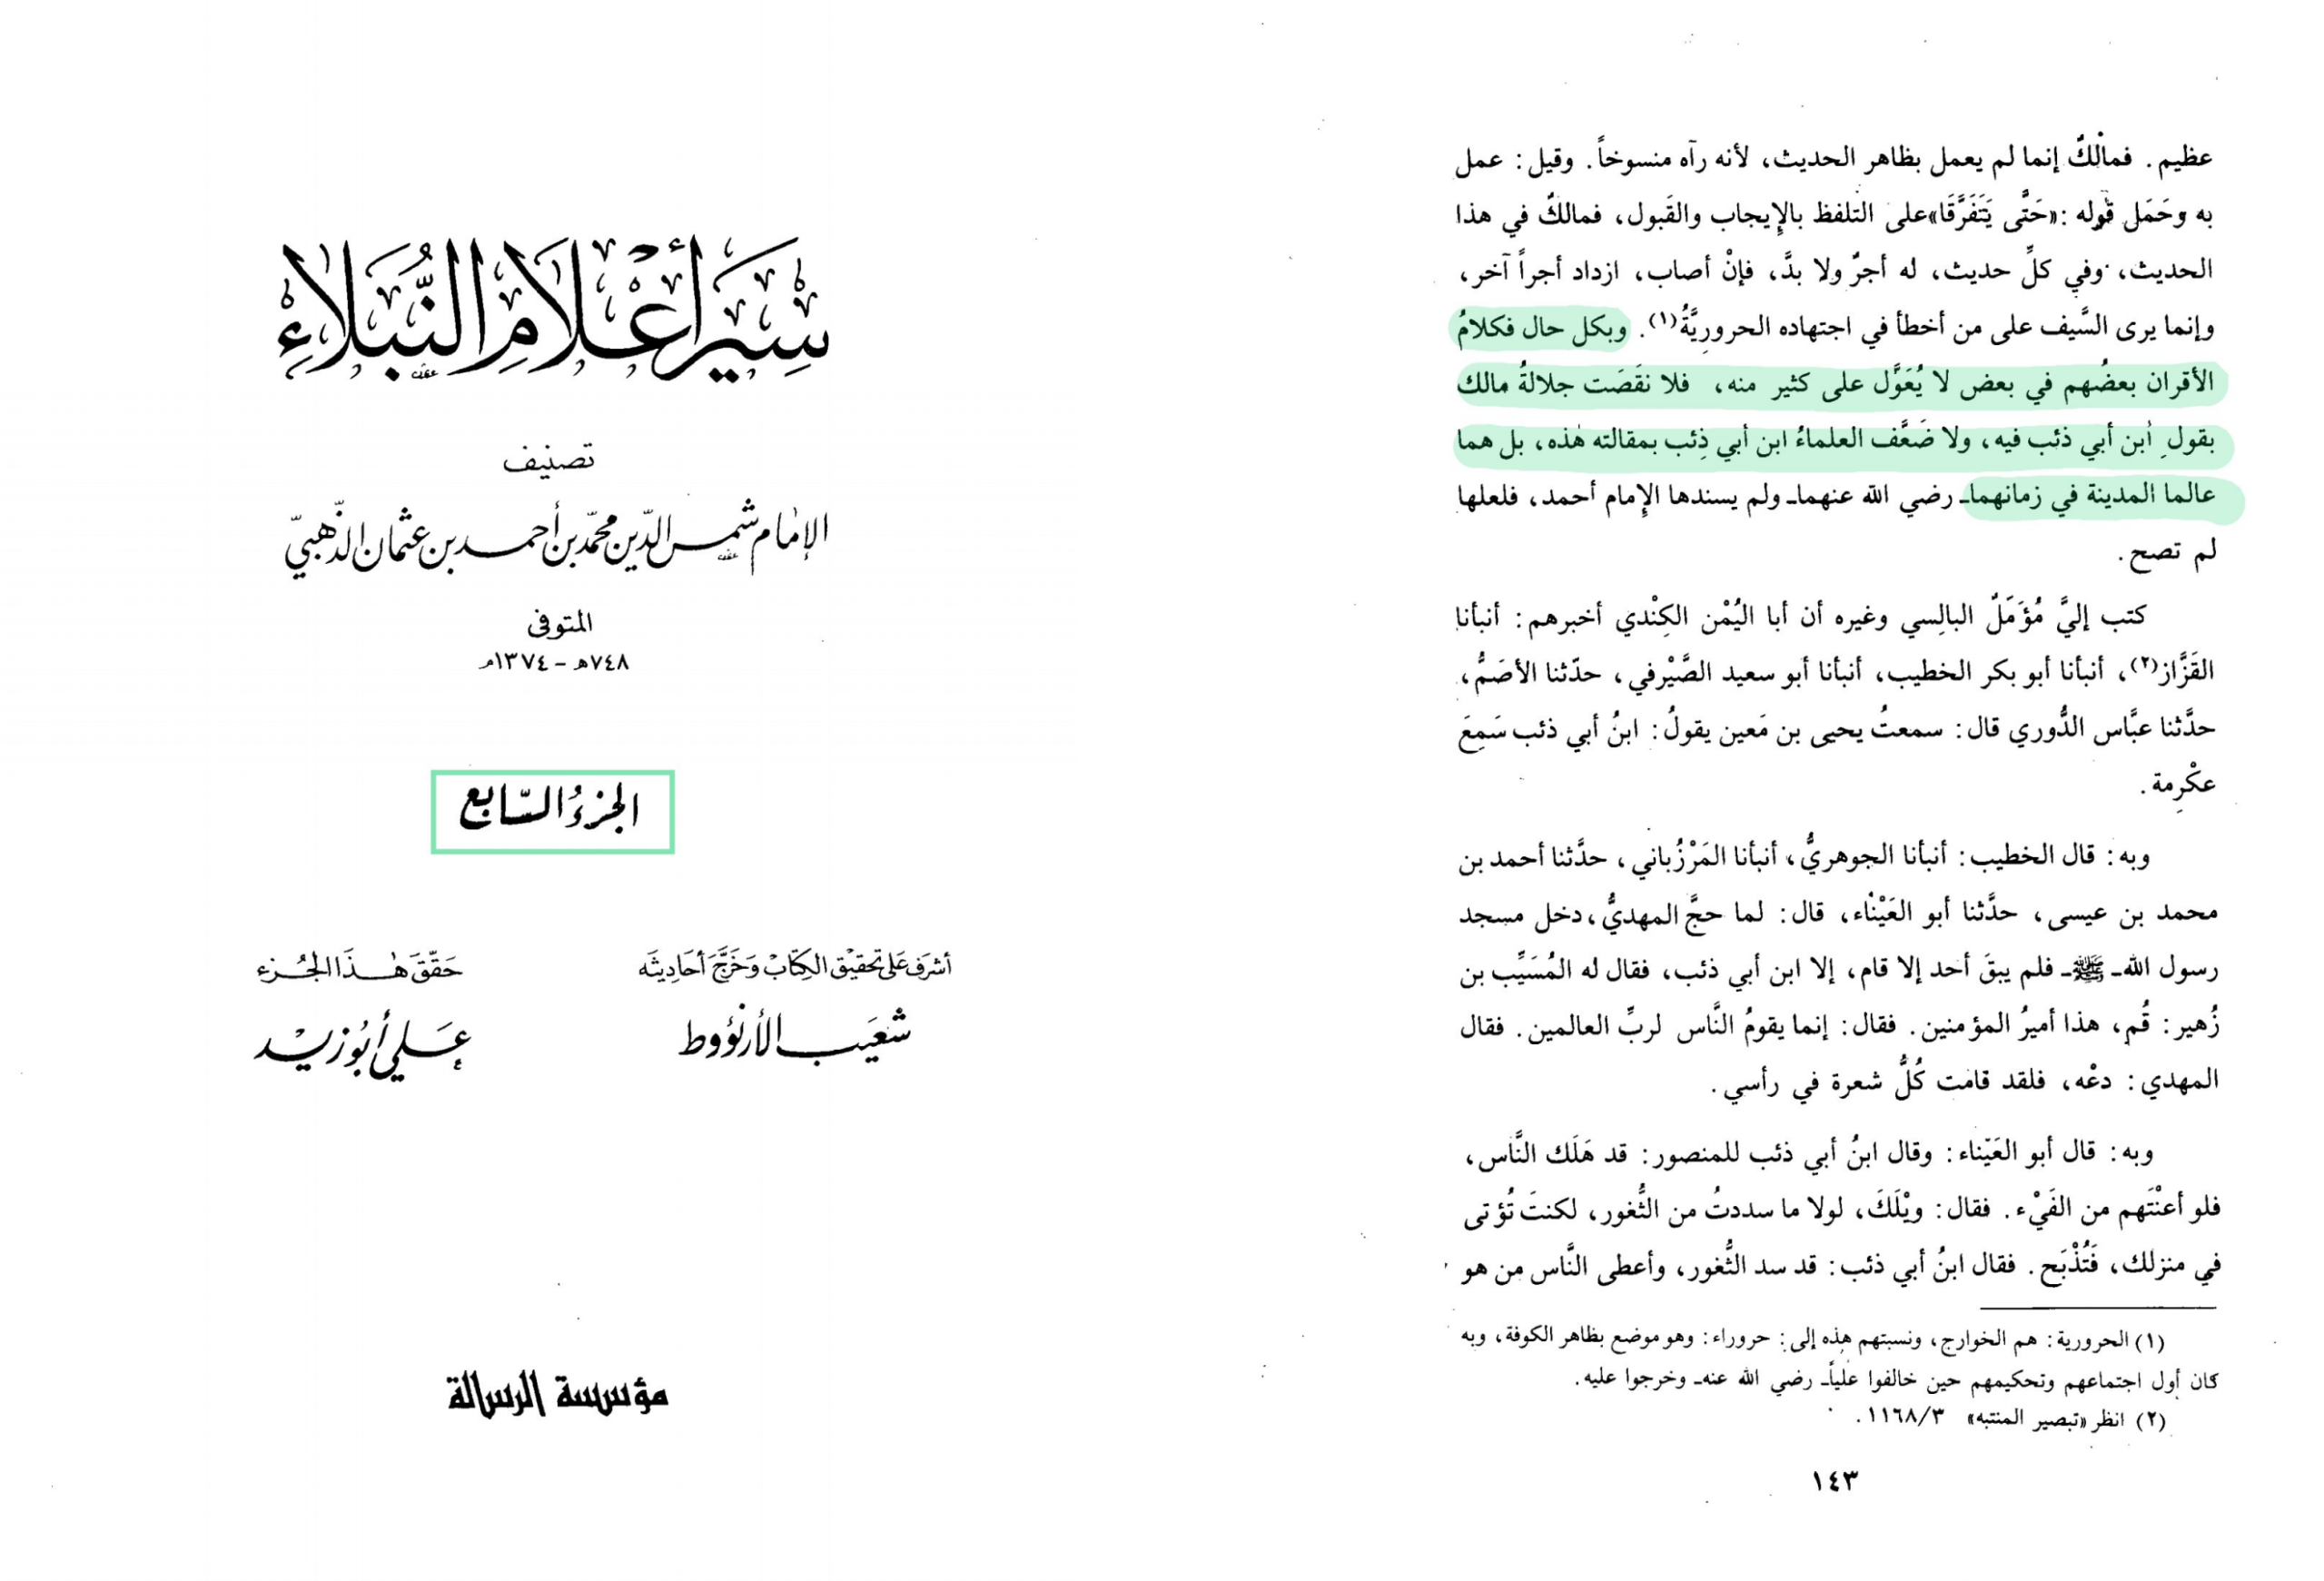 سير أعلام النبلاء
تصنيف
الإمام شمس الدين محمد بن أحمد بن عثمان الذهبي
المتوفى
٧٤٨هـ - ١٣٧٤م
الجزء السابع
أشرف على تحقيق الكتاب وخرج أحاديثه
شعيب الأرنؤوط
حقق هذا الجزء
علي أبو زيد
مؤسسة الرسالة
عظيم. فمالكٌ إنما لم يعمل بظاهر الحديث، لأنه رآه منسوخاً. وقيل: عمل
به وحَمَل قوله: «حَتَّى يَتَفَرَّقَا» على التلفظ بالإِيجاب والقَبول، فمالكٌ في هذا
الحديث، وفي كلِّ حديث، له أجرٌ ولا بدَّ، فإنْ أصاب، ازداد أجراً آخر،
وإنما يرى السَّيف على من أخطأ في اجتهاده الحروريَّةُ(١). وبكل حال فكلامُ
الأقران بعضُهم في بعض لا يُعَوَّل على كثير منه، فلا نقَصَت جلالةُ مالك
بقول ابن أبي ذئب فيه، ولا ضَعَّف العلماءُ ابن أبي ذِئب بمقالته هذه، بل هما
عالما المدينة في زمانهما ـ رضي الله عنهما ـ ولم يسندها الإِمام أحمد، فلعلها
لم تصح.
كتب إليَّ مُؤَمَلٌ البالِسي وغيره أن أبا اليُمْن الكِنْدي أخبرهم: أنبأنا
القَزَّاز(٢)، أنبأنا أبو بكر الخطيب، أنبأنا أبو سعيد الصَّيْرفي، حدّثنا الأصَمُّ،
حدَّثنا عبَّاس الدُّوري قال: سمعتُ يحيى بن مَعين يقولُ: ابنُ أبي ذئب سَمِعَ
عكْرِمة.
وبه: قال الخطيب: أنبأنا الجوهريُّ، أنبأنا المَرْزُباني، حدَّثنا أحمد بن
محمد بن عيسى، حدَّثنا أبو العَيْناء، قال: لما حجَّ المهديُّ، دخل مسجد
رسول الله ـ ﷺ ـ فلم يبقَ أحد إلا قام، إلا ابن أبي ذئب، فقال له المُسَيِّب بن
زُهير: قُم، هذا أميرُ المؤمنين. فقال: إنما يقومُ النَّاس لربِّ العالمين. فقال
المهدي: دعْه، فلقد قامت كُلُّ شعرة في رأسي.
وبه: قال أبو العَيّناء: وقال ابنُ أبي ذئب للمنصور: قد هَلَك النَّاس،
فلو أعنْتَهم من الفَيْء. فقال: ويْلَكَ، لولا ما سددتُ من الثُّغور، لكنتَ تُؤتى
في منزلك، فَتُذْبَح. فقال ابنُ أبي ذئب: قد سد الثُّغور، وأعطى النَّاس من هو
(١) الحرورية: هم الخوارج، ونسبتهم هذه إلى: حروراء: وهو موضع بظاهر الكوفة، وبه
كان أول اجتماعهم وتحكيمهم حين خالفوا علياً ـ رضي الله عنه ـ وخرجوا عليه.
(٢) انظر «تبصير المنتبه» ١١٦٨/٣.
١٤٣